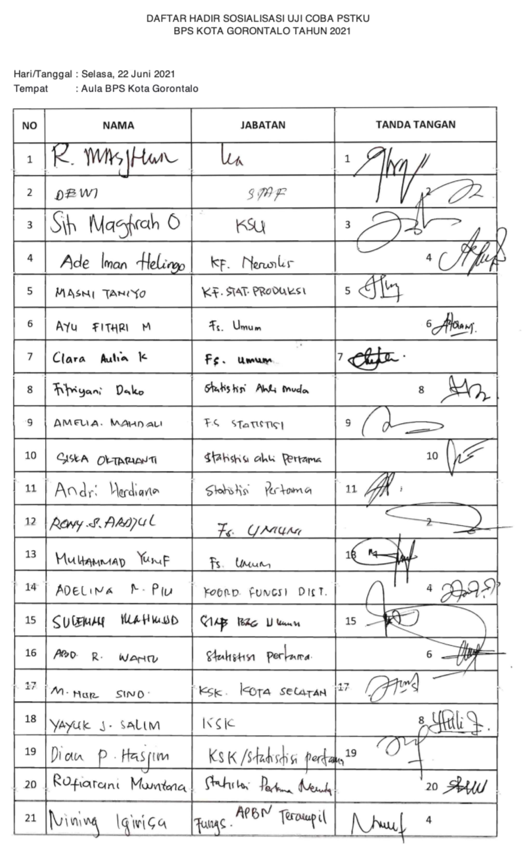 DAFTAR HADIR SOSIALISASI UJI COBA PSTKU
BPS KOTA GORONTALO TAHUN 2021
Hari/Tanggal : Selasa, 22 Juni 2021
Tempat : Aula BPS Kota Gorontalo
NO NAMA JABATAN TANDA TANGAN
1 R. 1
2 DEWI STAF 2
3 Siti Magfirah O KSU 3
4 Ade Iman Helingo KF. Nerwilis 4
5 MASNI TANIYO KF. STAT. PRODUKSI 5
6 AYU FITHRI M Fs. Umum 6
7 Clara Aulia K Fs. umum 7
8 Fitriyani Dako Statistisi Ahli Muda 8
9 AMELIA. MAHDALI FS STATISTISI 9
10 SISKA OKTARIANTI Statistisi ahli Pertama 10
11 Andri Herdiana Statistisi Pertama 11
12 RONY. S. ABDJUL Fs. UMUM 2
13 MUHAMMAD YUSUF Fs. Umum 13
14 ADELINA N. PIU KOORD FUNGSI DIST. 4
15 SULEMAN MAHMUD Umum 15
16 ABD R. WAHYU Statistisi pertama. 6
17 M. NUR SINO. KSK. KOTA SELATAN 17
18 YAYUK J. SALIM KSK 8
19 Dian P. Hasjim KSK/Statistisi pertama 19
20 Statistisi Pertama 20
21 Nining Fungs. APBN Terampil 4